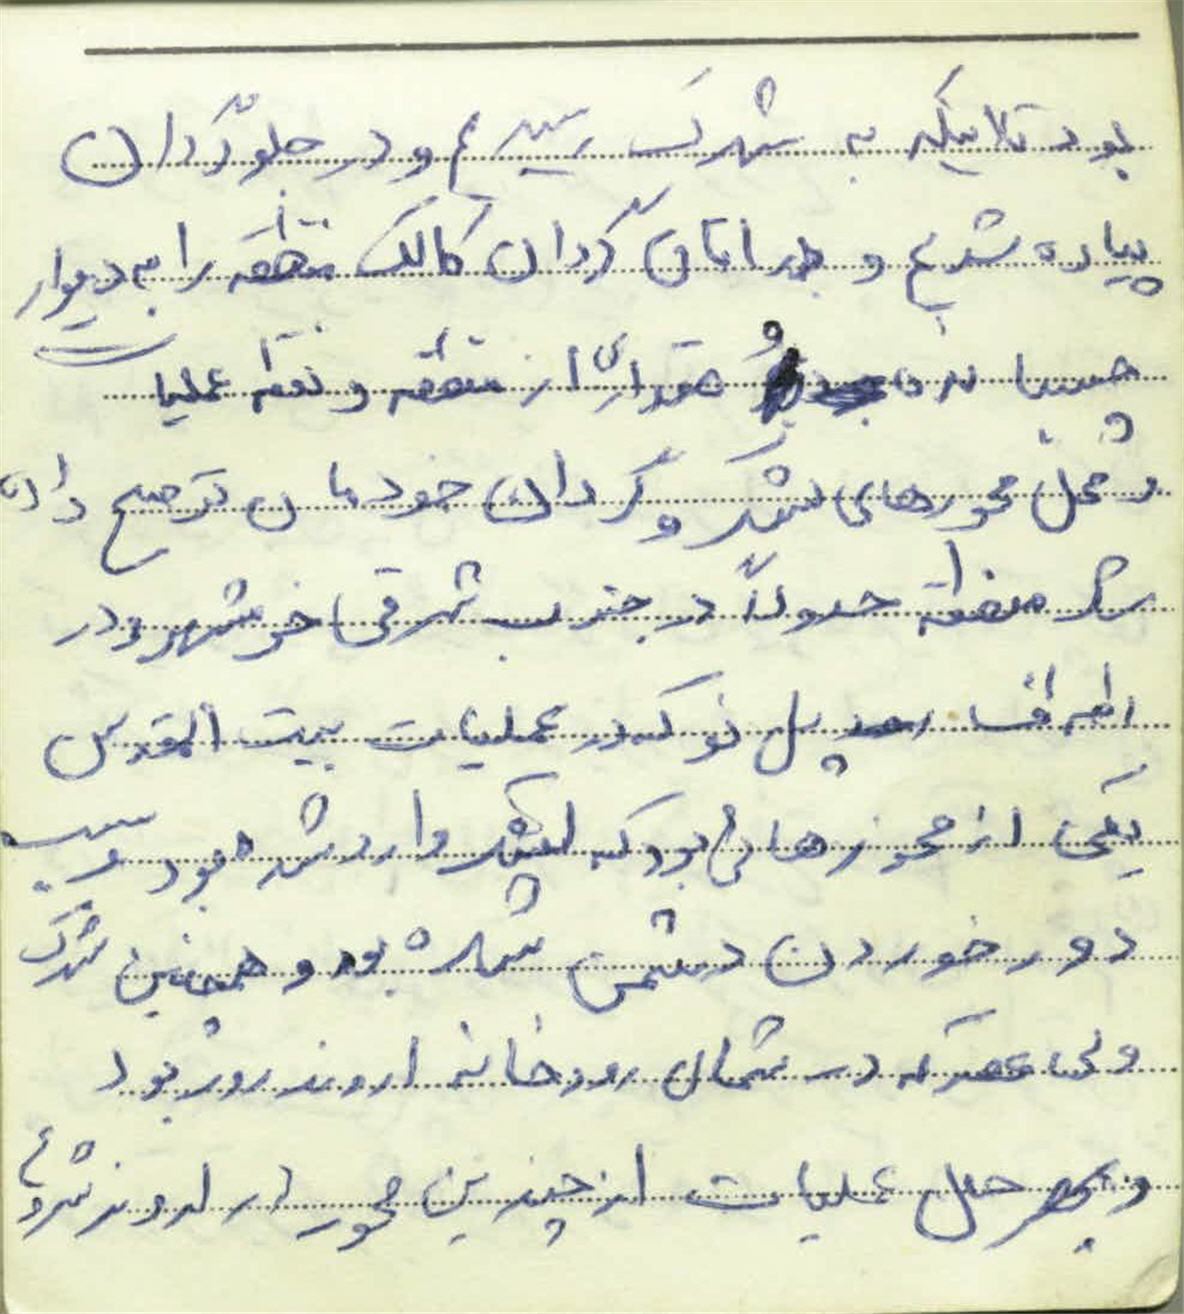 بود تا اینکه به شهرک رسیدیم و در جلو گردان
پیاده شدیم و در اتاق گردان کالک منطقه را به دیوار
چسبانده و مقداری از منطقه و نقطه عملیات
و محل محورهای لشکر و گردان خودمان توضیح دادن
که منطقه حدوداً در جنوب شرقی خرمشهر و در
اطراف پل نو که در عملیات بیت المقدس
یکی از محورهائی بود که لشکر وارد شده بود و سبب
دور خوردن دشمن شده بود و همچنین شهرک
ولی عصر که در شمال رودخانه اروند رود بود
و بهر حال عملیات از چندین محور از اروند شروع